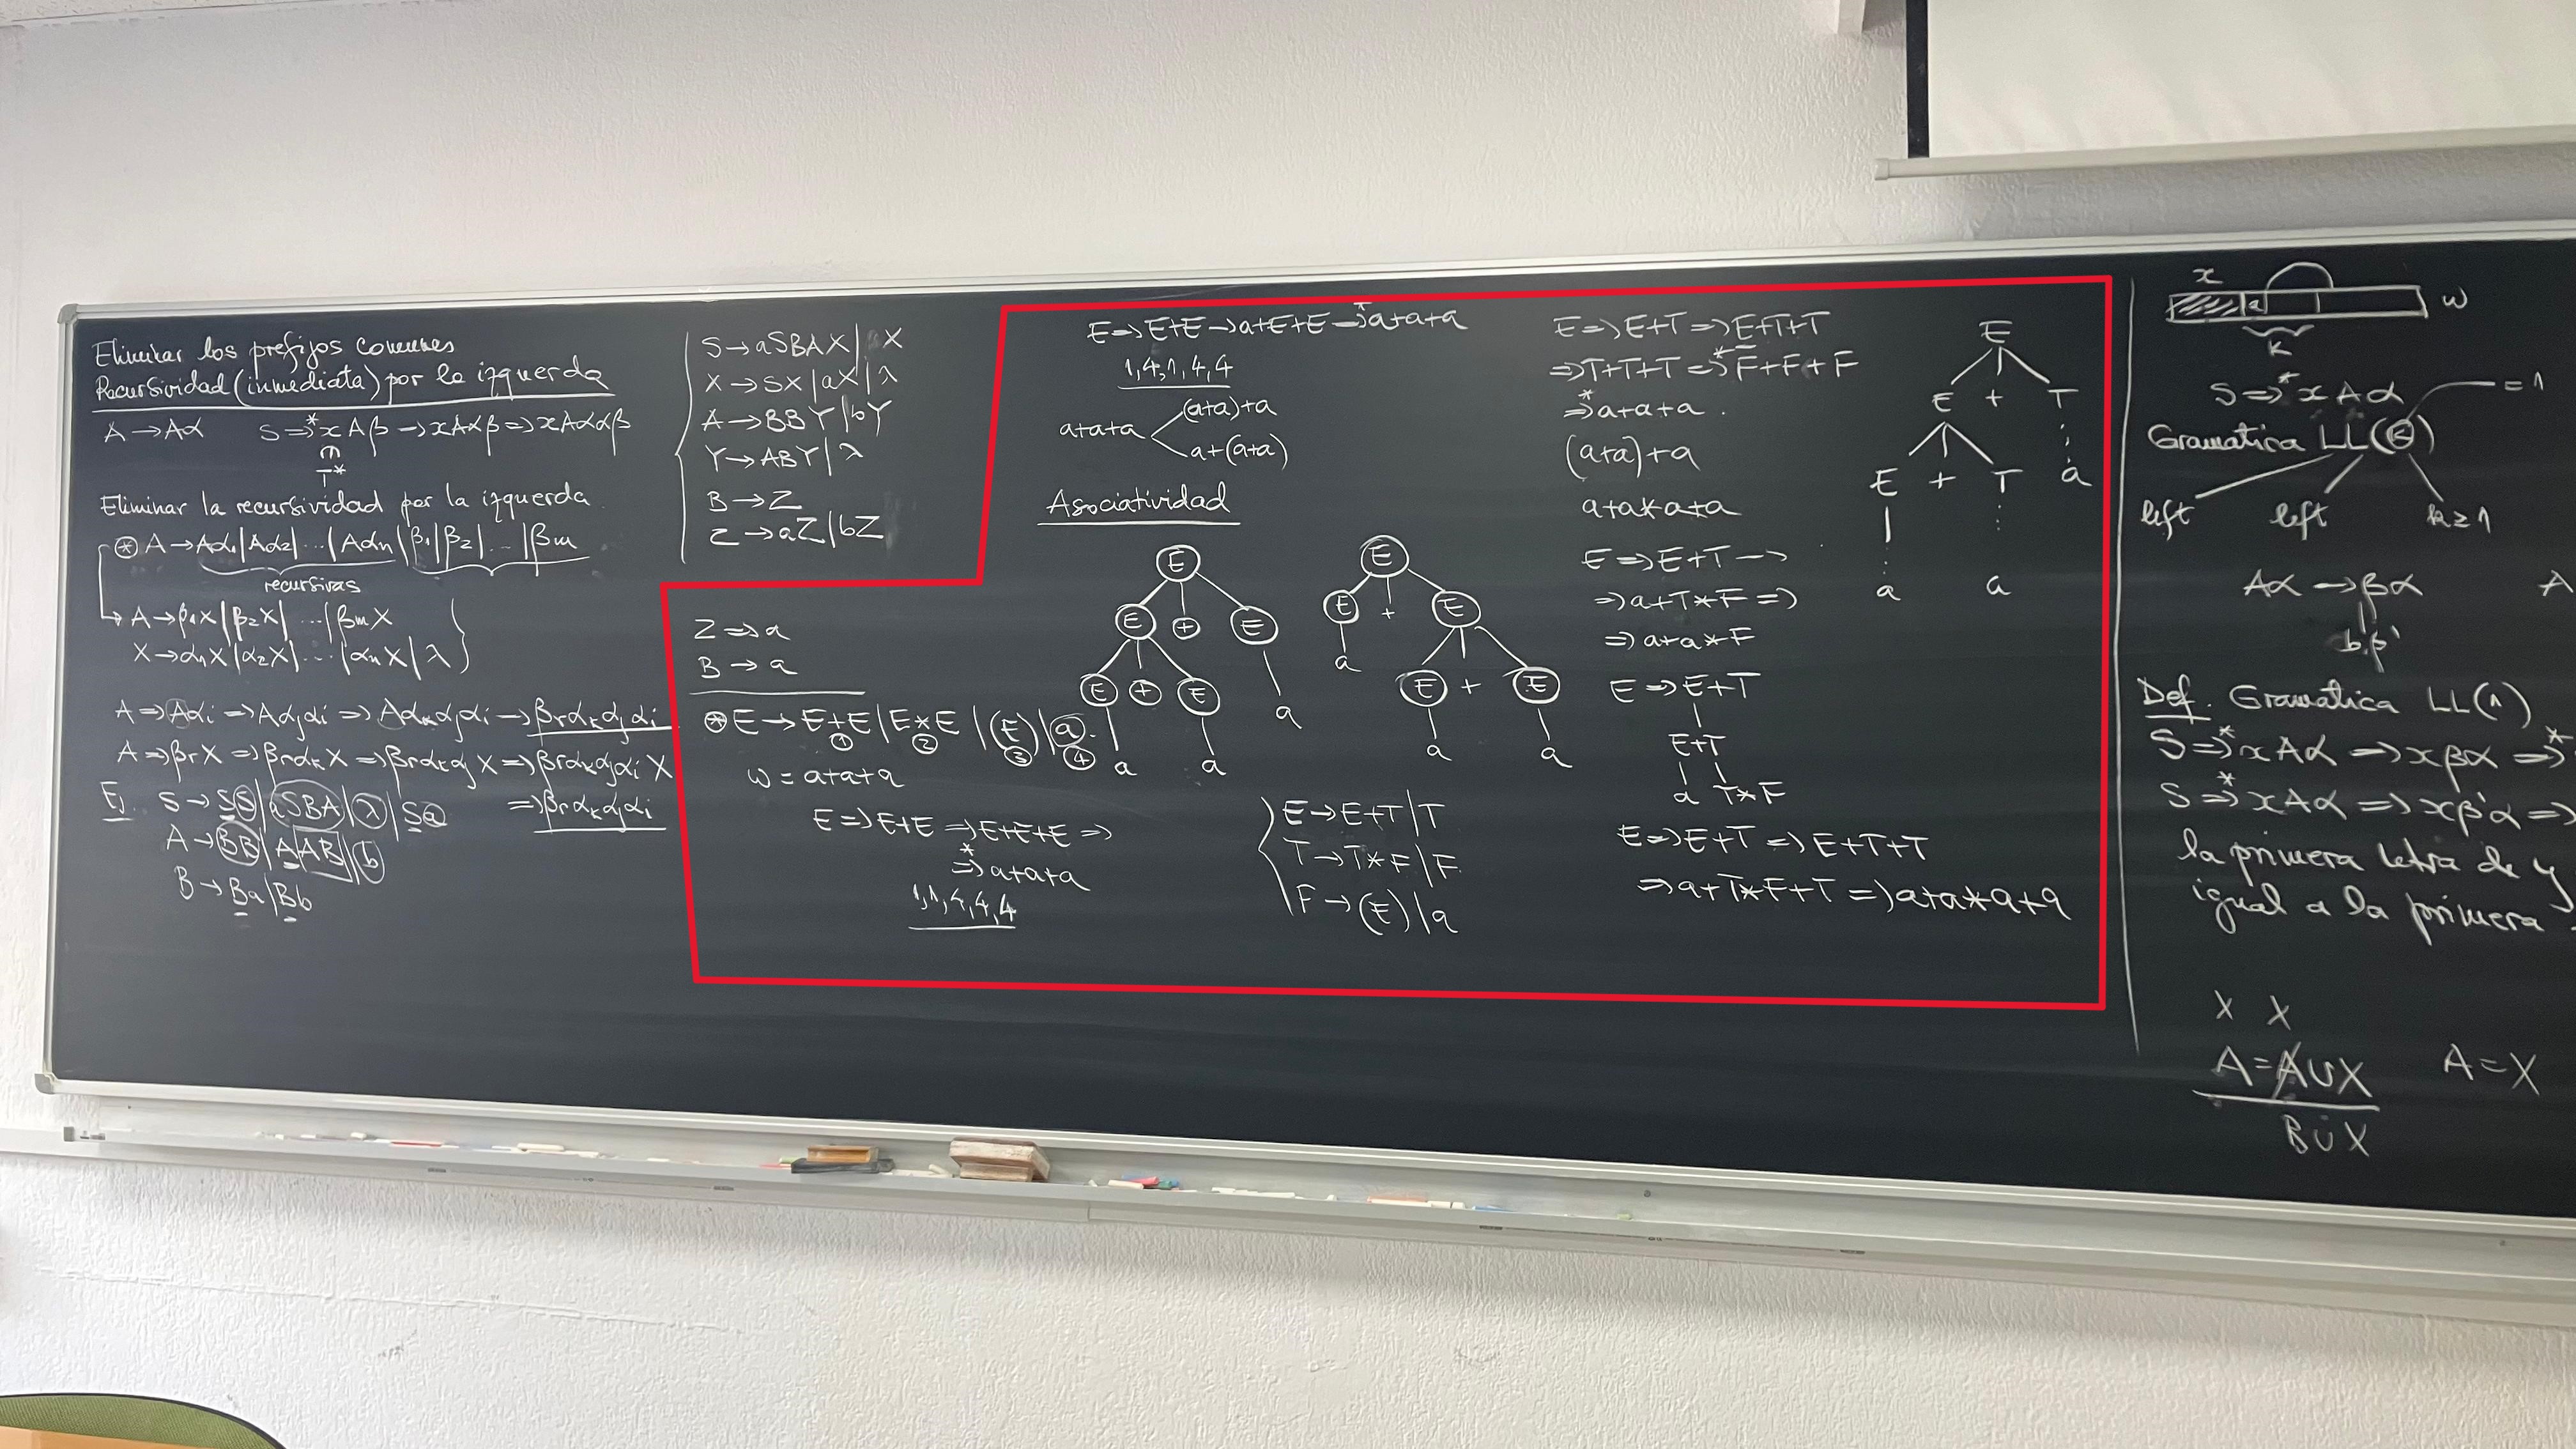 Eliminar los prefijos comunes
Recursividad (inmediata) por la izquierda
A → Aα S ⇒* x A β → x A α β ⇒ x A α α β
T*
Eliminar la recursividad por la izquierda
⊛ A → Aα1 | Aα2 | ... | Aαn | β1 | β2 | ... | βm
recursivas
A → β1X | β2X | ... | βmX
X → α1X | α2X | ... | αnX | λ
A ⇒ Aαi ⇒ Aαjαi ⇒ Aαkαjαi → βrαkαjαi
A ⇒ βrX ⇒ βrαkX ⇒ βrαkαjX ⇒ βrαkαjαiX
⇒ βrαkαjαi
Ej. S → SS | aSBA | λ | Sa
A → BB | AAB | b
B → Ba | Bb
S → aSBAX | X
X → SX | aX | λ
A → BBY | bY
Y → ABY | λ
B → Z
Z → aZ | bZ
Z ⇒ a
B → a
⊛ E → E+E | E*E | (E) | a
① ② ③ ④
w = a+a+a
E ⇒ E+E ⇒ E+E+E ⇒
⇒* a+a+a
1,1,4,4,4
E ⇒ E+E → a+E+E →* a+a+a
1,4,1,4,4
(a+a)+a
a+a+a
a+(a+a)
Asociatividad
E
E + E
E + E a
a a
E
E + E
a E + E
a a
E → E+T | T
T → T*F | F
F → (E) | a
E ⇒ E+T ⇒ E+T+T
⇒ T+T+T ⇒* F+F+F
⇒* a+a+a.
(a+a)+a
a+a*a+a
E ⇒ E+T →
⇒ a+T*F ⇒
⇒ a+a*F
E ⇒ E+T
E+T
a T*F
E ⇒ E+T ⇒ E+T+T
⇒ a+T*F+T ⇒ a+a*a+a
E
E + T
E + T a
a a
x
a w
K
S ⇒* x A α
Gramatica LL(K) = 1
left left k≥1
Aα → βα A
bβ'
Def. Gramatica LL(1)
S ⇒* xAα ⇒ xβα ⇒*
S ⇒* xAα ⇒ xβ'α ⇒
la primera letra de y
igual a la primera
X X
A = A∪X A = X
B∪X